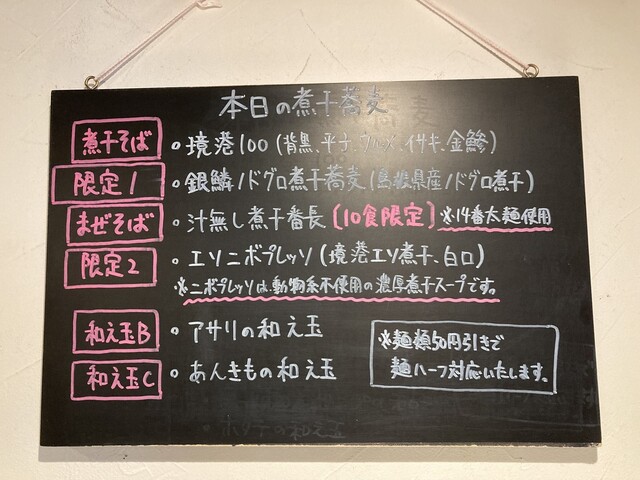 本日の煮干蕎麦
煮干そば 。境港100(背黒、平子、ウルメ、イサキ、金鯵)
限定1 。銀鱗ノドグロ煮干蕎麦(島根県産ノドグロ煮干)
まぜそば 。汁無し煮干番長〔10食限定〕※14番太麺使用
限定2 。エソニボプレッソ(境港エソ煮干、白口)
※ニボプレッソは、動物系不使用の濃厚煮干スープです。
和え玉B 。アサリの和え玉
和え玉C 。あんきもの和え玉
※麺類50円引きで
麺ハーフ対応いたします。